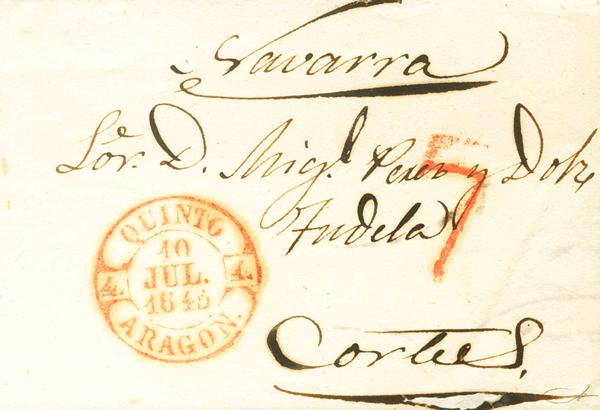 Navarra
Sor. D. Migl. Perez y Dolz
7
Tudela
QUINTO
10
JUL.
1845
4. 1.
ARAGON.
Cortes.